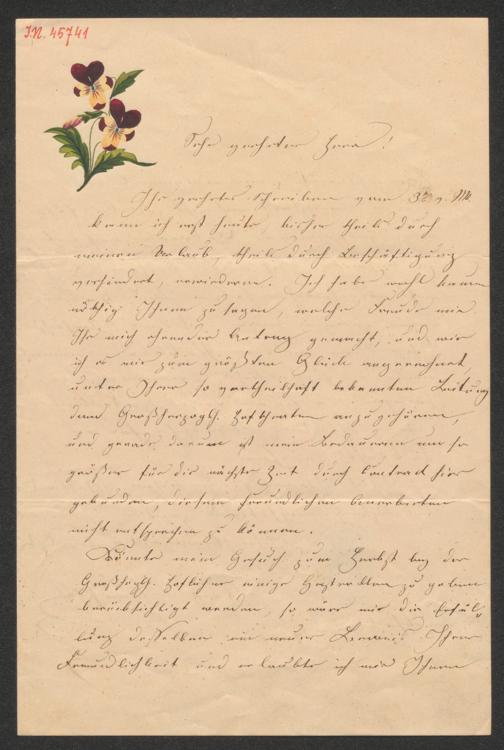 I.N. 45741
Sehr geehrter Herr!
Ihr geehrtes Schreiben vom 3t. v. Mt.
kann ich erst heute, bisher theils durch
meinen Urlaub, theils durch Beschäftigung
verhindert, erwiedern. Ich habe wohl kaum
nöthig Ihnen zu sagen, welche Freude mir
Ihr mich ehrender Antrag gemacht, und wie
ich es mir zum größten Glück angerechnet,
unter Ihrer so vortheilhaft bekannten Leitung
dem Großherzogl. Hoftheater anzugehören,
und gerade darum ist mein Bedauern um so
größer für die nächste Zeit durch Contract hier
gebunden, diesem freundlichen Anerbieten
nicht entsprechen zu können.
Könnte mein Gesuch zum Herbst bey der
Großhzgl. Hofbühne einige Gastrollen zu geben
berücksichtigt werden, so wäre mir die Erfül-
lung desselben ein neuer Beweis Ihrer
Freundlichkeit und erlaubte ich mir Ihnen